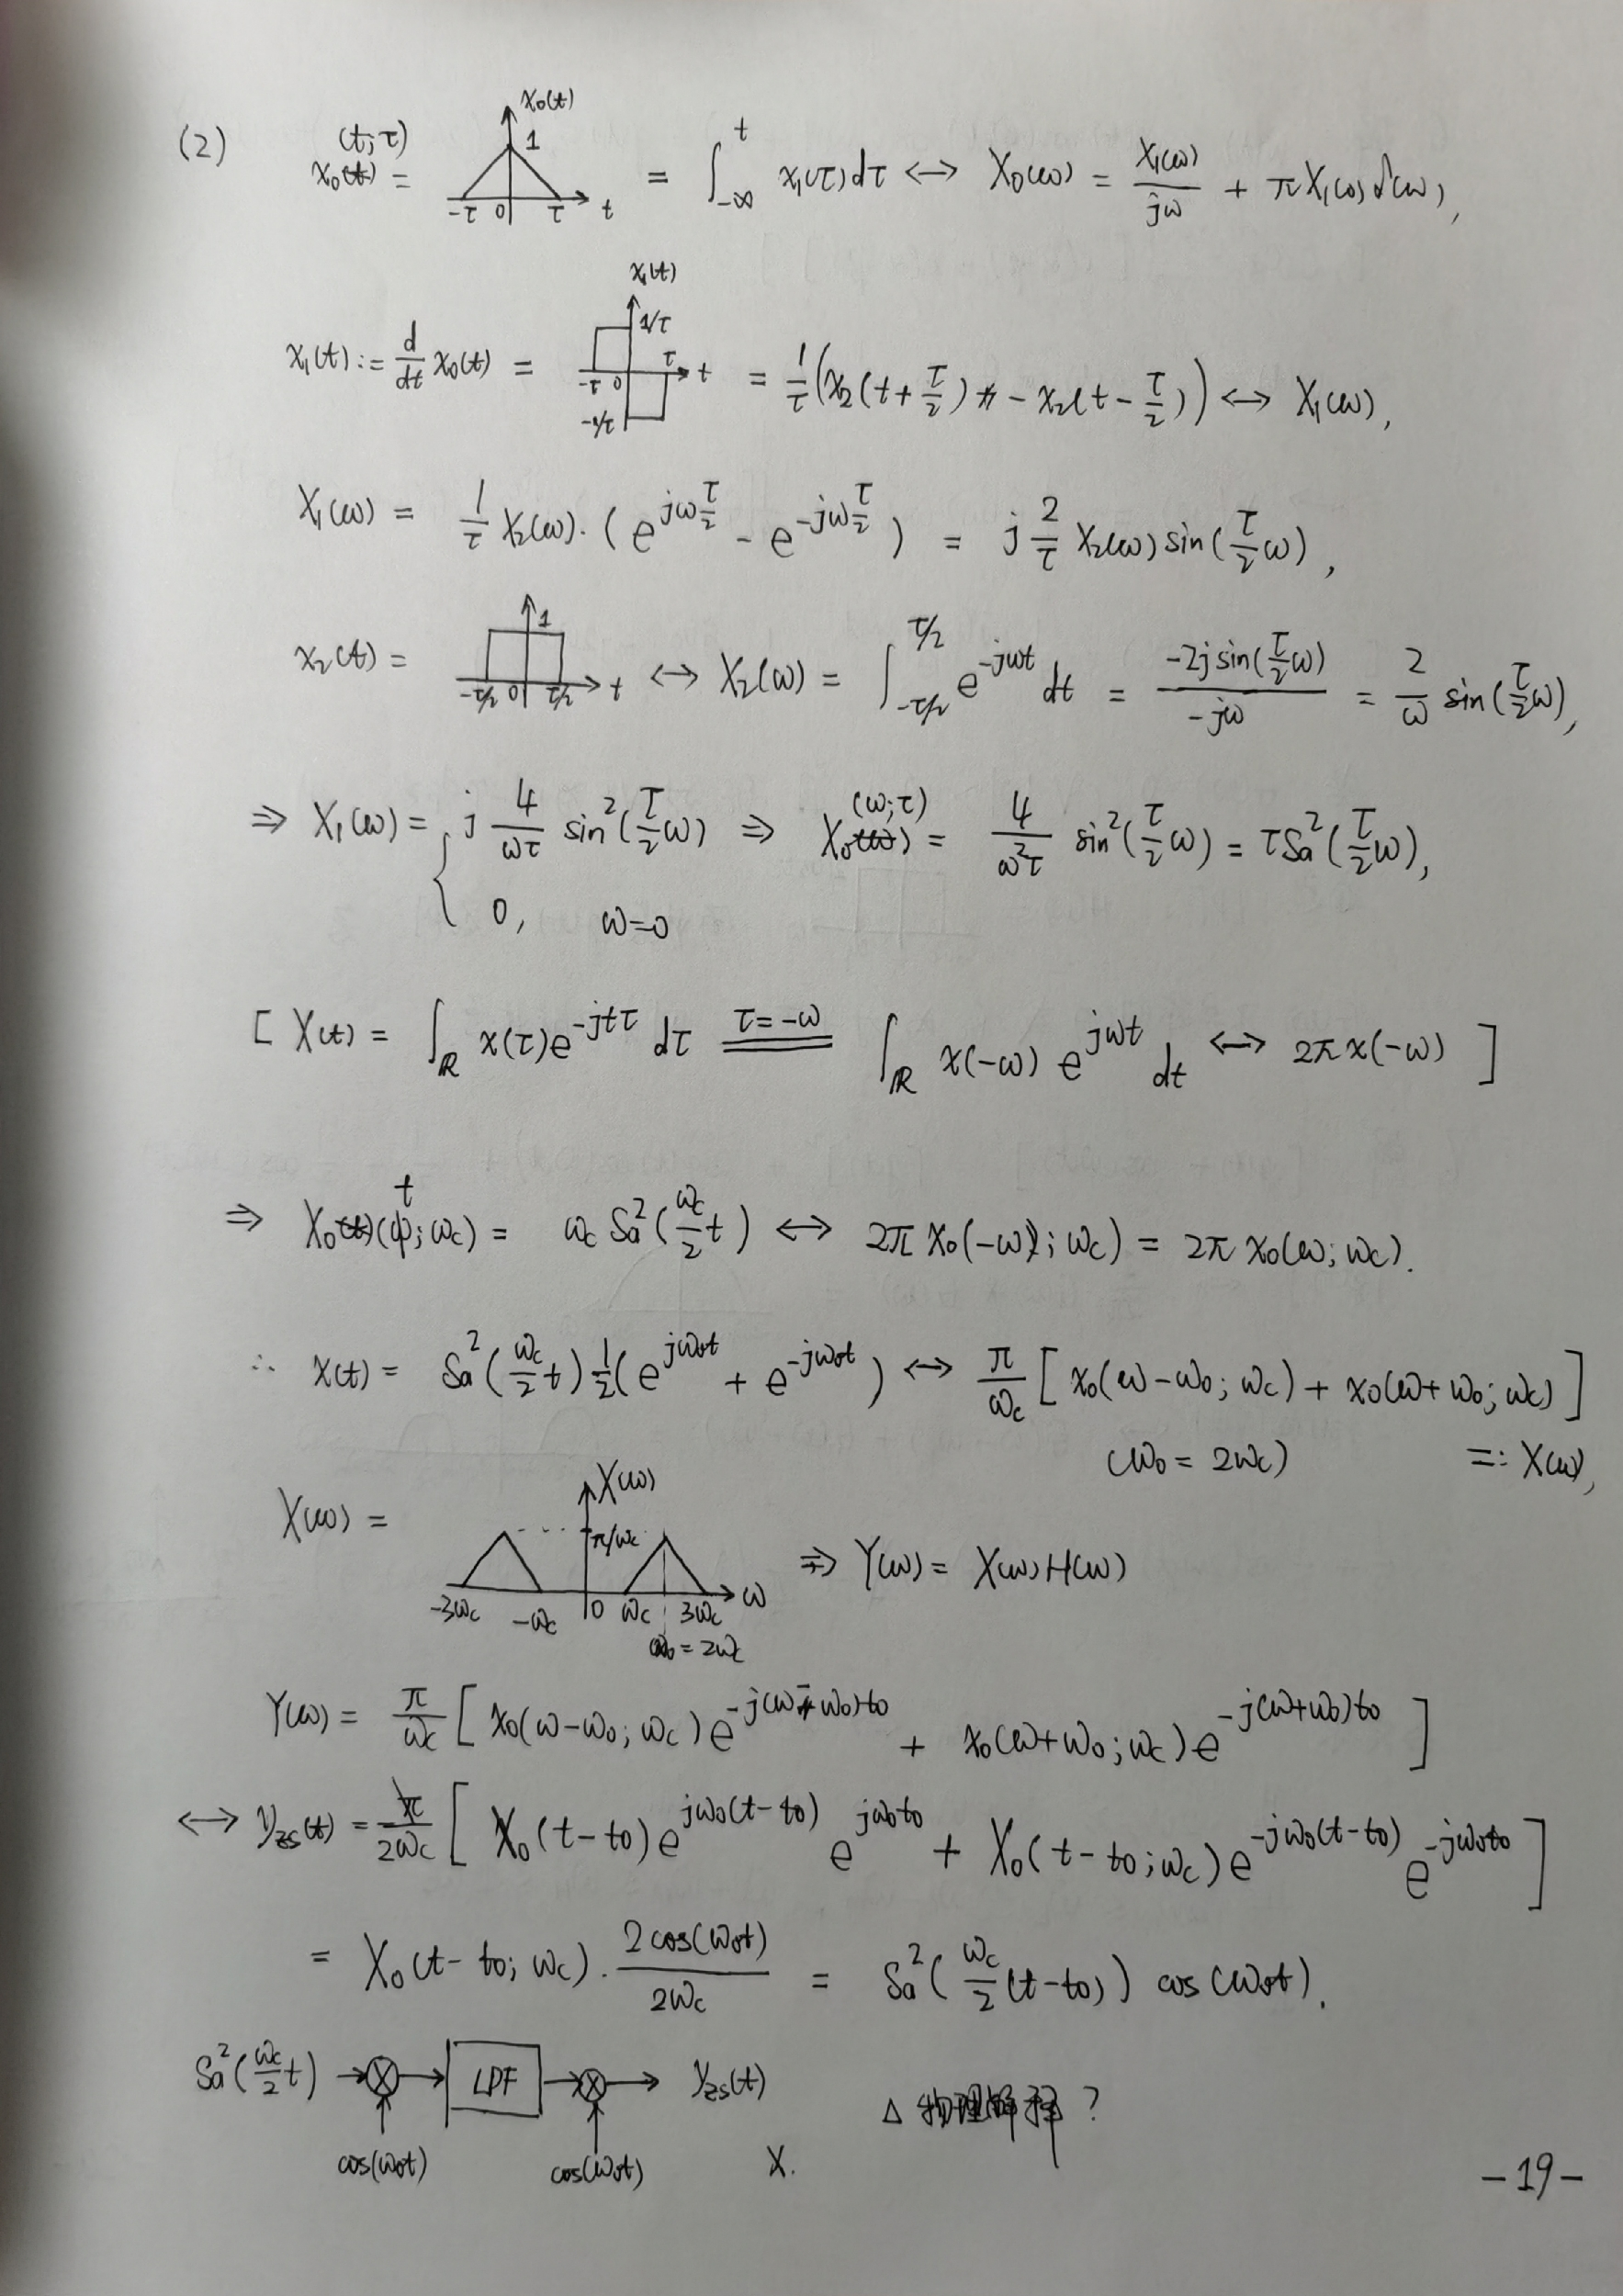 (2) x₀(t;τ) = x₀(t) 1 -τ 0 τ t = ∫_{-∞}^{t} x₁(τ)dτ ↔ X₀(ω) = X₁(ω)/jω + πX₁(0)δ(ω),
x₁(t) := d/dt x₀(t) = x₁(t) 1/τ τ -τ 0 t -1/τ = 1/τ (x₂(t+τ/2) - x₂(t-τ/2)) ↔ X₁(ω),
X₁(ω) = 1/τ X₂(ω)·(e^{jωτ/2} - e^{-jωτ/2}) = j 2/τ X₂(ω) sin(τ/2 ω),
x₂(t) = 1 -τ/2 0 τ/2 t ↔ X₂(ω) = ∫_{-τ/2}^{τ/2} e^{-jωt} dt = -2j sin(τ/2 ω)/-jω = 2/ω sin(τ/2 ω),
⇒ X₁(ω) = { j 4/ωτ sin²(τ/2 ω) ⇒ X₀(ω;τ) = 4/ω²τ sin²(τ/2 ω) = τSa²(τ/2 ω),
0, ω=0
[ X(t) = ∫_ℝ x(τ)e^{-jtτ} dτ τ=-ω ═ ∫_ℝ x(-ω) e^{jωt} dt ↔ 2πx(-ω) ]
⇒ X₀(t;ωc) = ωc Sa²(ωc/2 t) ↔ 2πx₀(-ω;ωc) = 2πx₀(ω;ωc).
∴ x(t) = Sa²(ωc/2 t) 1/2 (e^{jω₀t} + e^{-jω₀t}) ↔ π/ωc [ x₀(ω-ω₀;ωc) + x₀(ω+ω₀;ωc) ]
(ω₀ = 2ωc) =: X(ω),
X(ω) = X(ω) π/ωc -3ωc -ωc 0 ωc 3ωc ω ω₀=2ωc ⇒ Y(ω) = X(ω)H(ω)
Y(ω) = π/ωc [ x₀(ω-ω₀;ωc)e^{-j(ω-ω₀)t₀} + x₀(ω+ω₀;ωc)e^{-j(ω+ω₀)t₀} ]
↔ y_zs(t) = 1/2ωc [ X₀(t-t₀)e^{jω₀(t-t₀)} e^{jω₀t₀} + X₀(t-t₀;ωc)e^{-jω₀(t-t₀)} e^{-jω₀t₀} ]
= X₀(t-t₀;ωc)·2cos(ω₀t)/2ωc = Sa²(ωc/2 (t-t₀)) cos(ω₀t).
Sa²(ωc/2 t) → ⊗ → LPF → ⊗ → y_zs(t) △ 物理解释?
cos(ω₀t) cos(ω₀t) X.
-19-